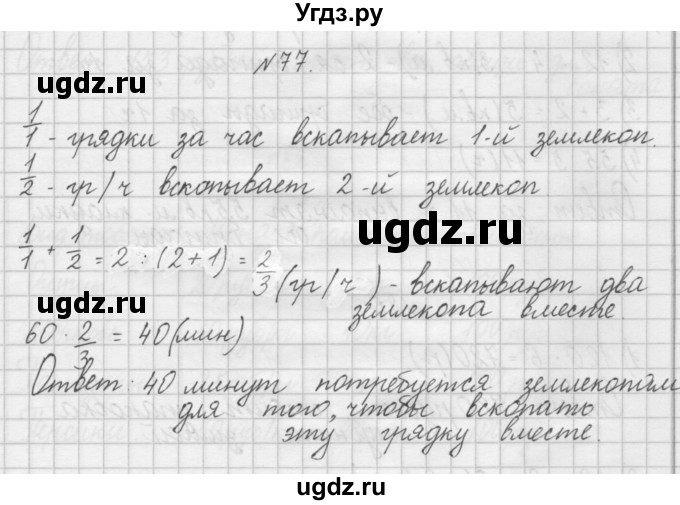 Угдз.ру
№77.
1/1 - грядки за час вскапывает 1-й землекоп.
1/2 - гр/ч вскопывает 2-й землекоп
1/1 + 1/2 = 2 : (2+1) = 2/3 (гр/ч) - вскапывают два
землекопа вместе.
60 · 2/3 = 40 (мин)
Ответ: 40 минут потребуется землекопам
для того, чтобы вскопать
эту грядку вместе.
ugdz.ru
ugdz.ru
ugdz.ru
ugdz.ru
ugdz.ru
ugdz.ru
ugdz.ru